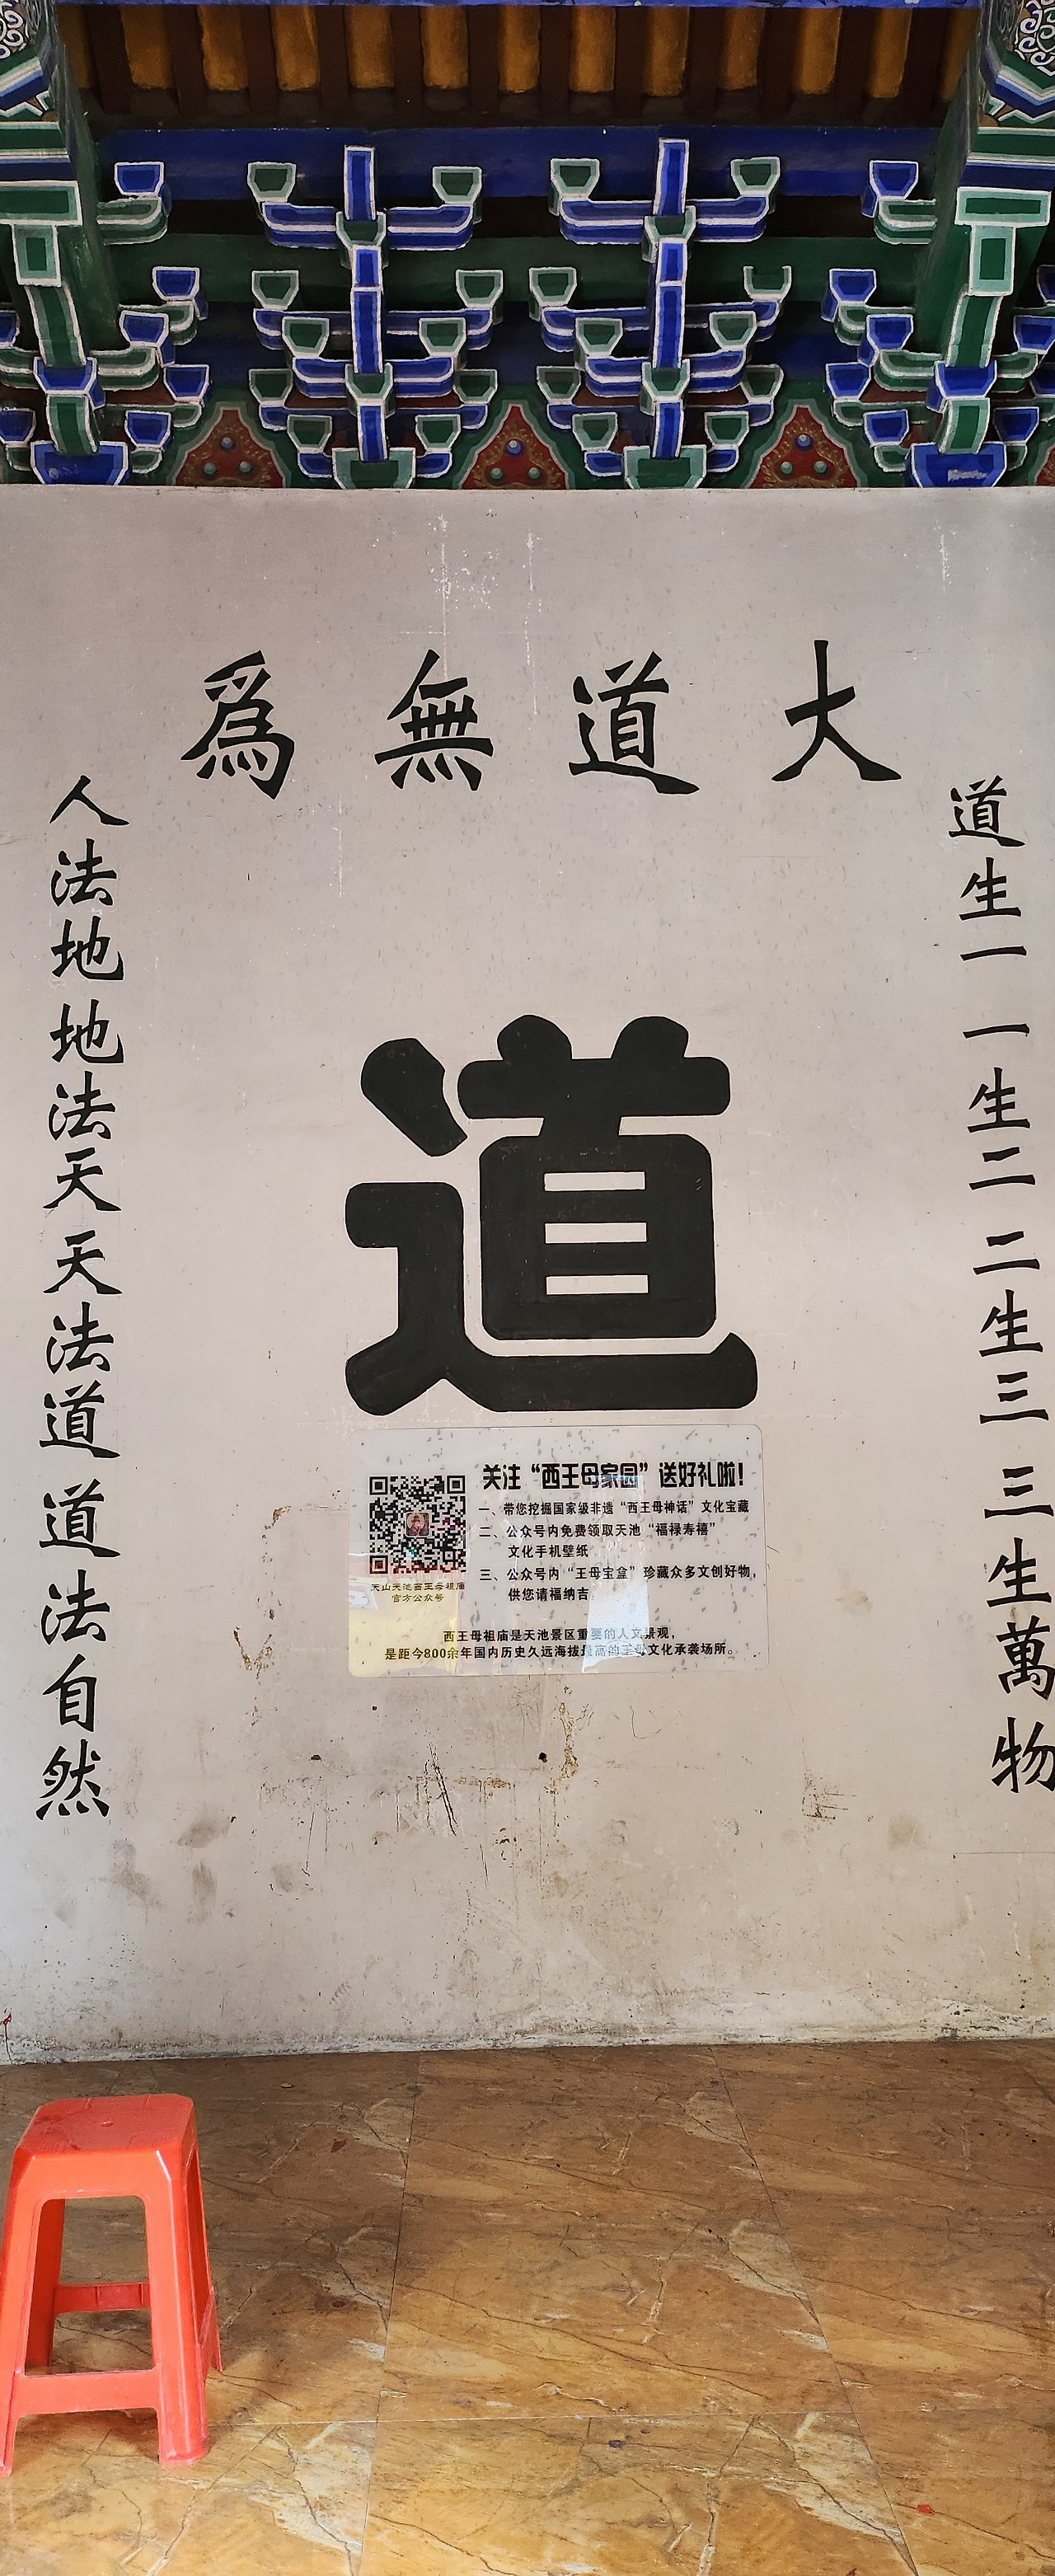 大道無爲
道生一一生二二生三三生萬物
道
人法地地法天天法道道法自然
关注“西王母家园”送好礼啦！
一、带您挖掘国家级非遗“西王母神话”文化宝藏
二、公众号内免费领取天池“福禄寿禧”
文化手机壁纸
三、公众号内“王母宝盒”珍藏众多文创好物，
供您请福纳吉
天山天池西王母祖庙
官方公众号
西王母祖庙是天池景区重要的人文景观，
是距今800余年国内历史久远海拔最高的王母文化承袭场所。